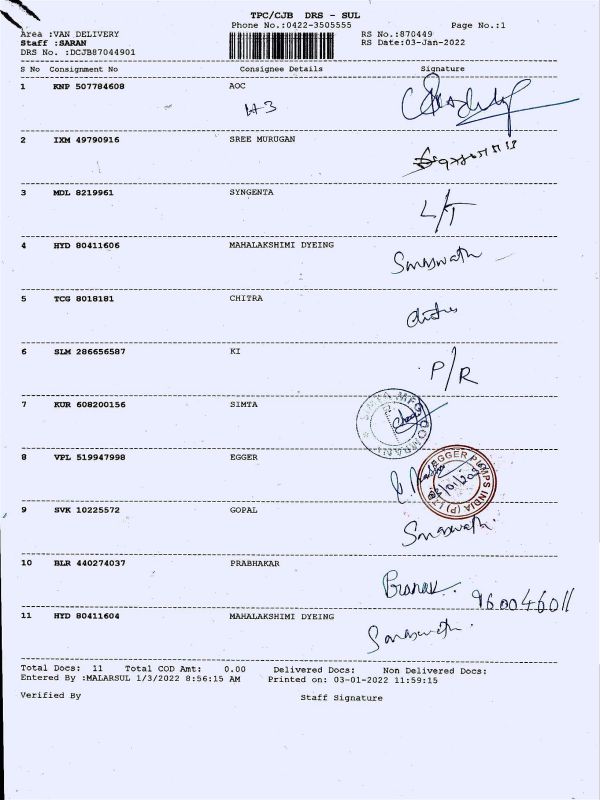 TPC/CJB DRS - SUL
Phone No.:0422-3505555 Page No.:1
Area :VAN DELIVERY RS No.:870449
Staff :SARAN RS Date:03-Jan-2022
DRS No. :DCJB87044901
S No Consignment No Consignee Details Signature
1 KNP 507784608 AOC
H-3
2 IXM 49790916 SREE MURUGAN
3 MDL 8219961 SYNGENTA L/T
4 HYD 80411606 MAHALAKSHIMI DYEING
5 TCG 8018181 CHITRA
6 SLM 286656587 KI P/R
7 KUR 608200156 SIMTA
SIMTA MFG COMPANY
8 VPL 519947998 EGGER
EGGER PUMPS INDIA (P) LTD
9 SVK 10225572 GOPAL
10 BLR 440274037 PRABHAKAR
Pranav. 960046011
11 HYD 80411604 MAHALAKSHIMI DYEING
Total Docs: 11 Total COD Amt: 0.00 Delivered Docs: Non Delivered Docs:
Entered By :MALARSUL 1/3/2022 8:56:15 AM Printed on: 03-01-2022 11:59:15
Verified By Staff Signature